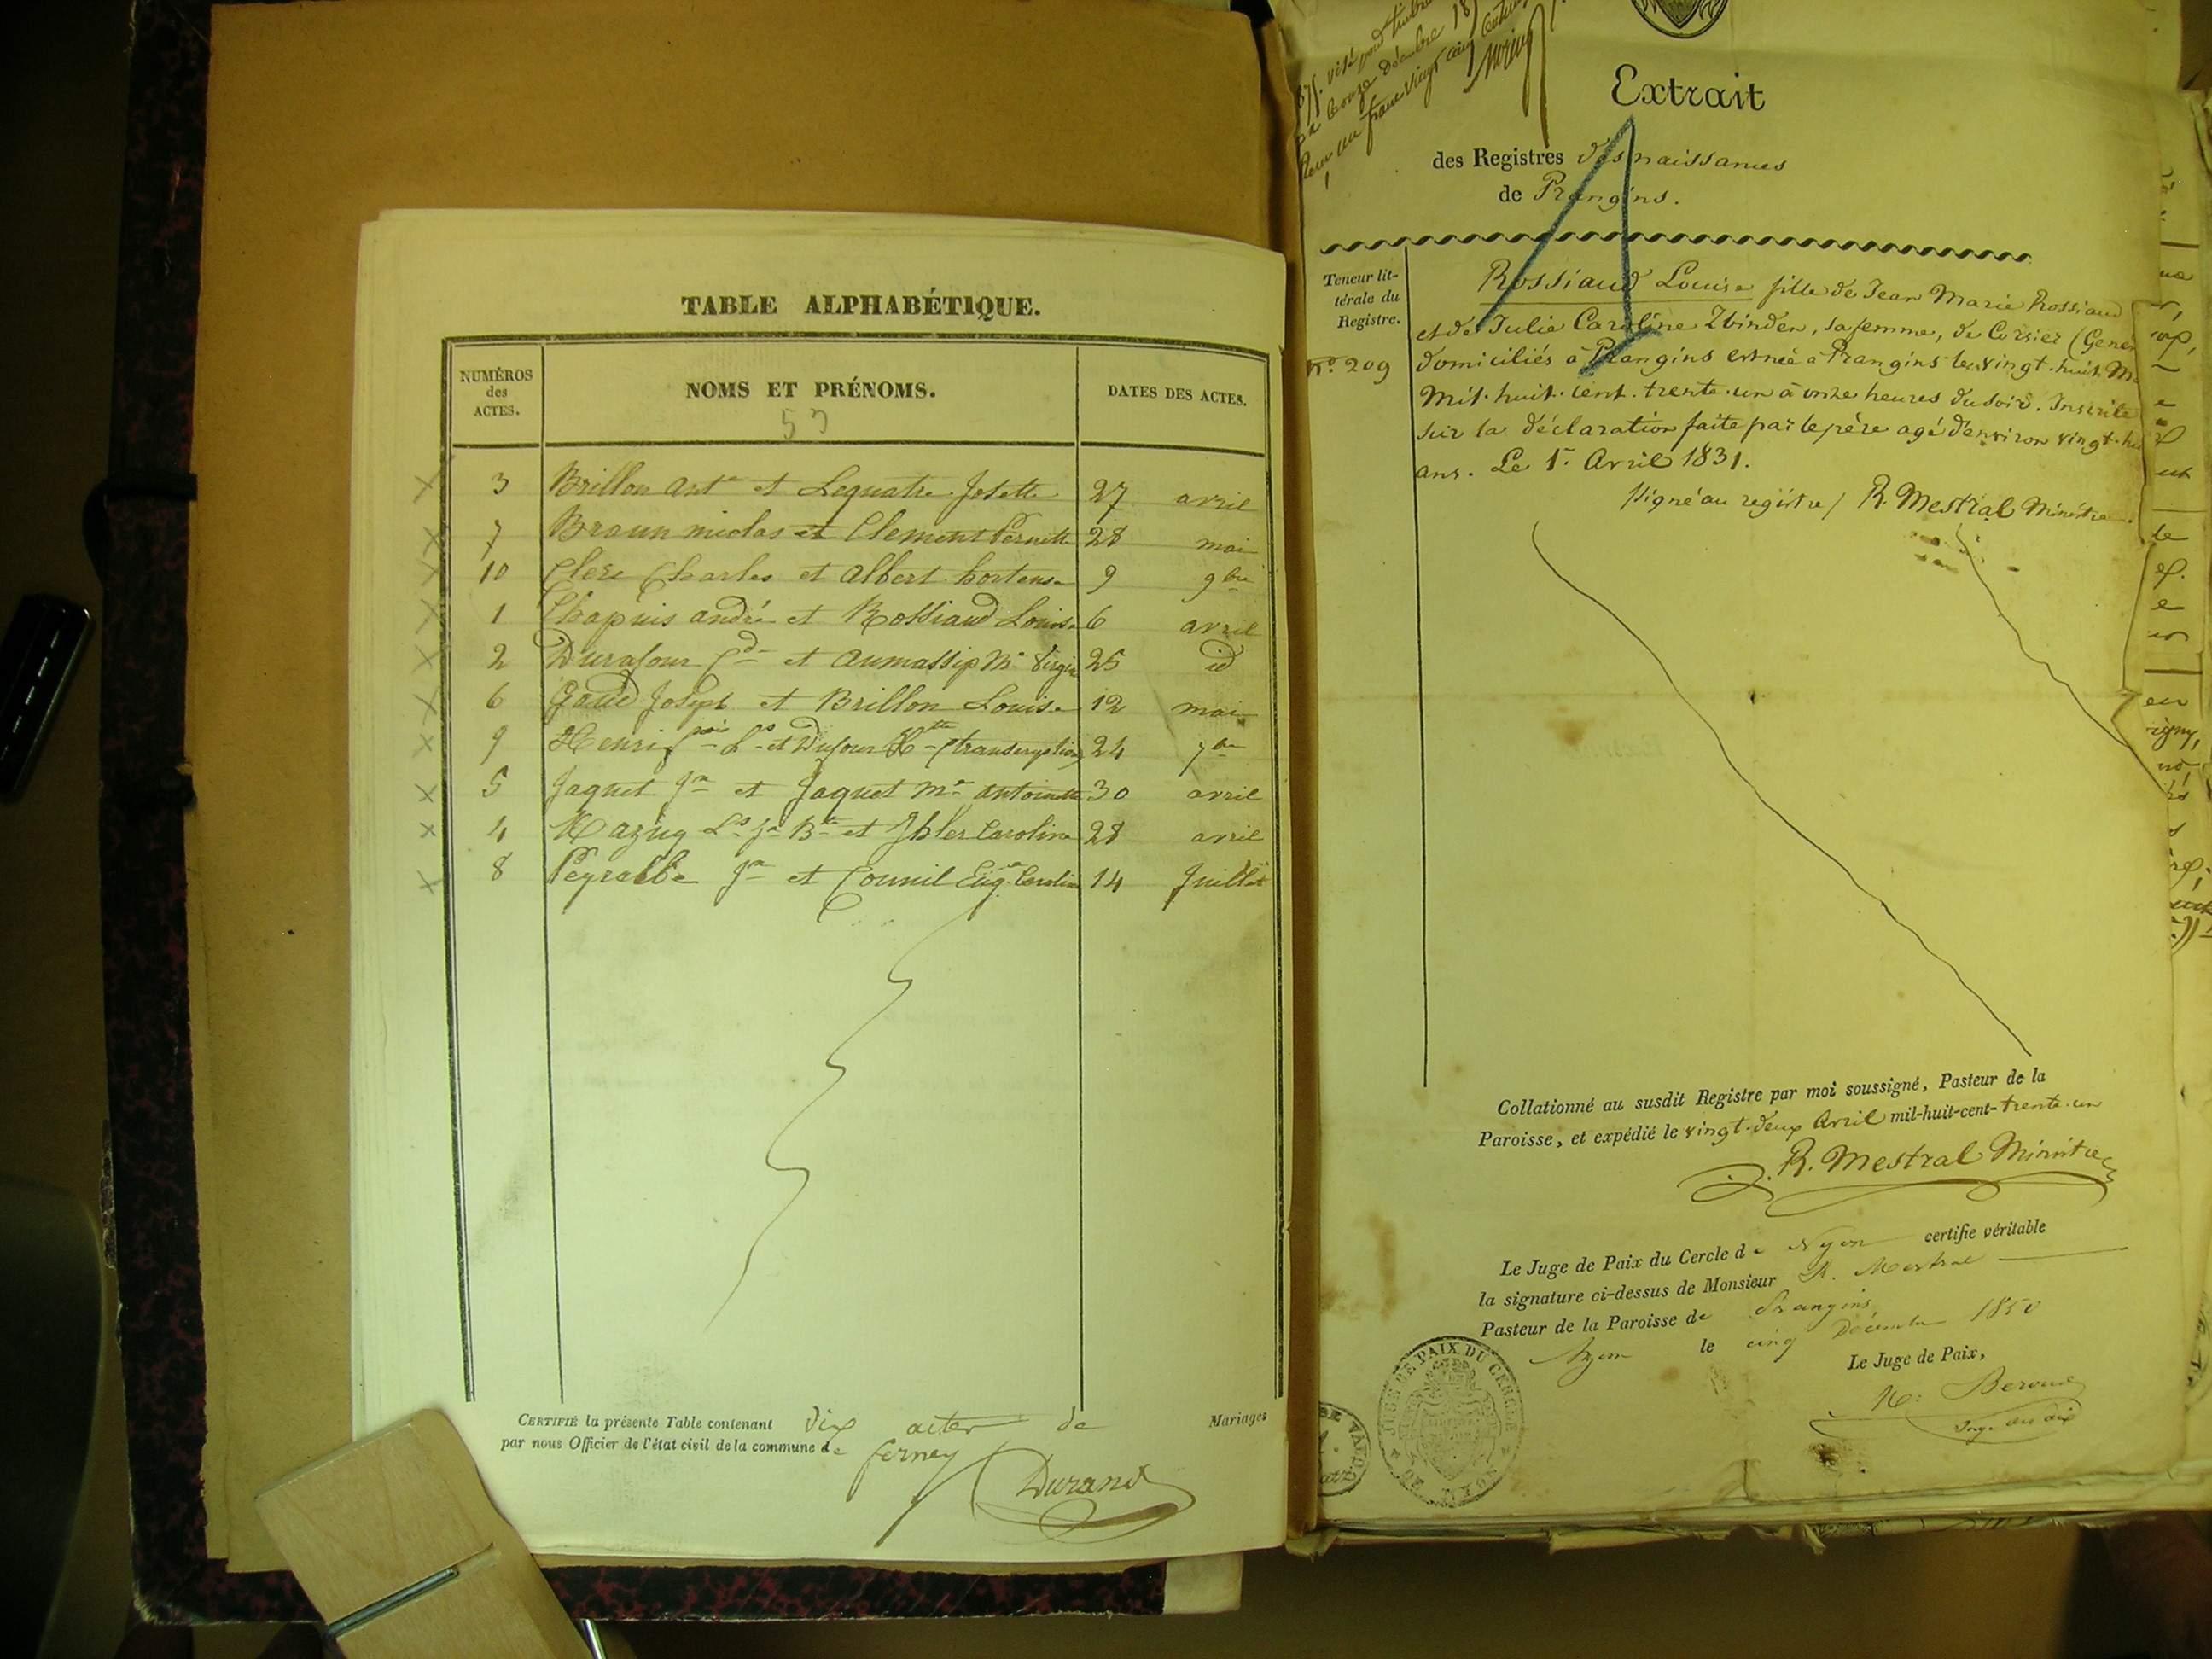 TABLE ALPHABÉTIQUE.
NUMÉROS des ACTES. NOMS ET PRÉNOMS. DATES DES ACTES.
53
3 Brillon Ant.e et Lequatre Josette 27 avril
7 Braun nicolas et Clement Pernette 28 mai
10 Clerc Charles et Albert hortense 9 9bre
1 Chapuis andré et Rossiaud Louise 6 avril
2 Durafour et Aumassip M.e Virginie 25 id
6 Goddé Joseph et Brillon Louise 12 mai
9 Henri L.s et Dufour (transcription) 24 7bre
5 Jaquet J.n et Jaquet M.e antoinette 30 avril
4 Mazug L.s J.n B.te et Ihler Caroline 28 avril
8 Peyralbe J.n et Counil Eug. Caroline 14 Juillet
CERTIFIÉ la présente Table contenant dix actes de Mariages
par nous Officier de l'état civil de la commune de ferney
Durand
Extrait
des Registres des naissances
de Prangins.
Teneur littérale du Registre.
N.o 209
Rossiaud Louise fille de Jean Marie Rossiaud
et de Julie Caroline Zbinden, sa femme, de Corsier (Genè
domiciliés à Prangins est née à Prangins le vingt-huit M
Mil-huit-cent-trente-un à onze heures du soir. Inscrite
sur la déclaration faite par le père agé d'environ vingt-hu
ans. Le 1.r Avril 1831.
signé au registre / R. Mestral Ministre
Collationné au susdit Registre par moi soussigné, Pasteur de la
Paroisse, et expédié le vingt-deux Avril mil-huit-cent-trente-un
R. Mestral Ministre
Le Juge de Paix du Cercle de Nyon certifie véritable
la signature ci-dessus de Monsieur R. Mestral
Pasteur de la Paroisse de Prangins,
Nyon le cinq Décembre 1850
Le Juge de Paix,
JUGE DE PAIX DU CERCLE DE NYON